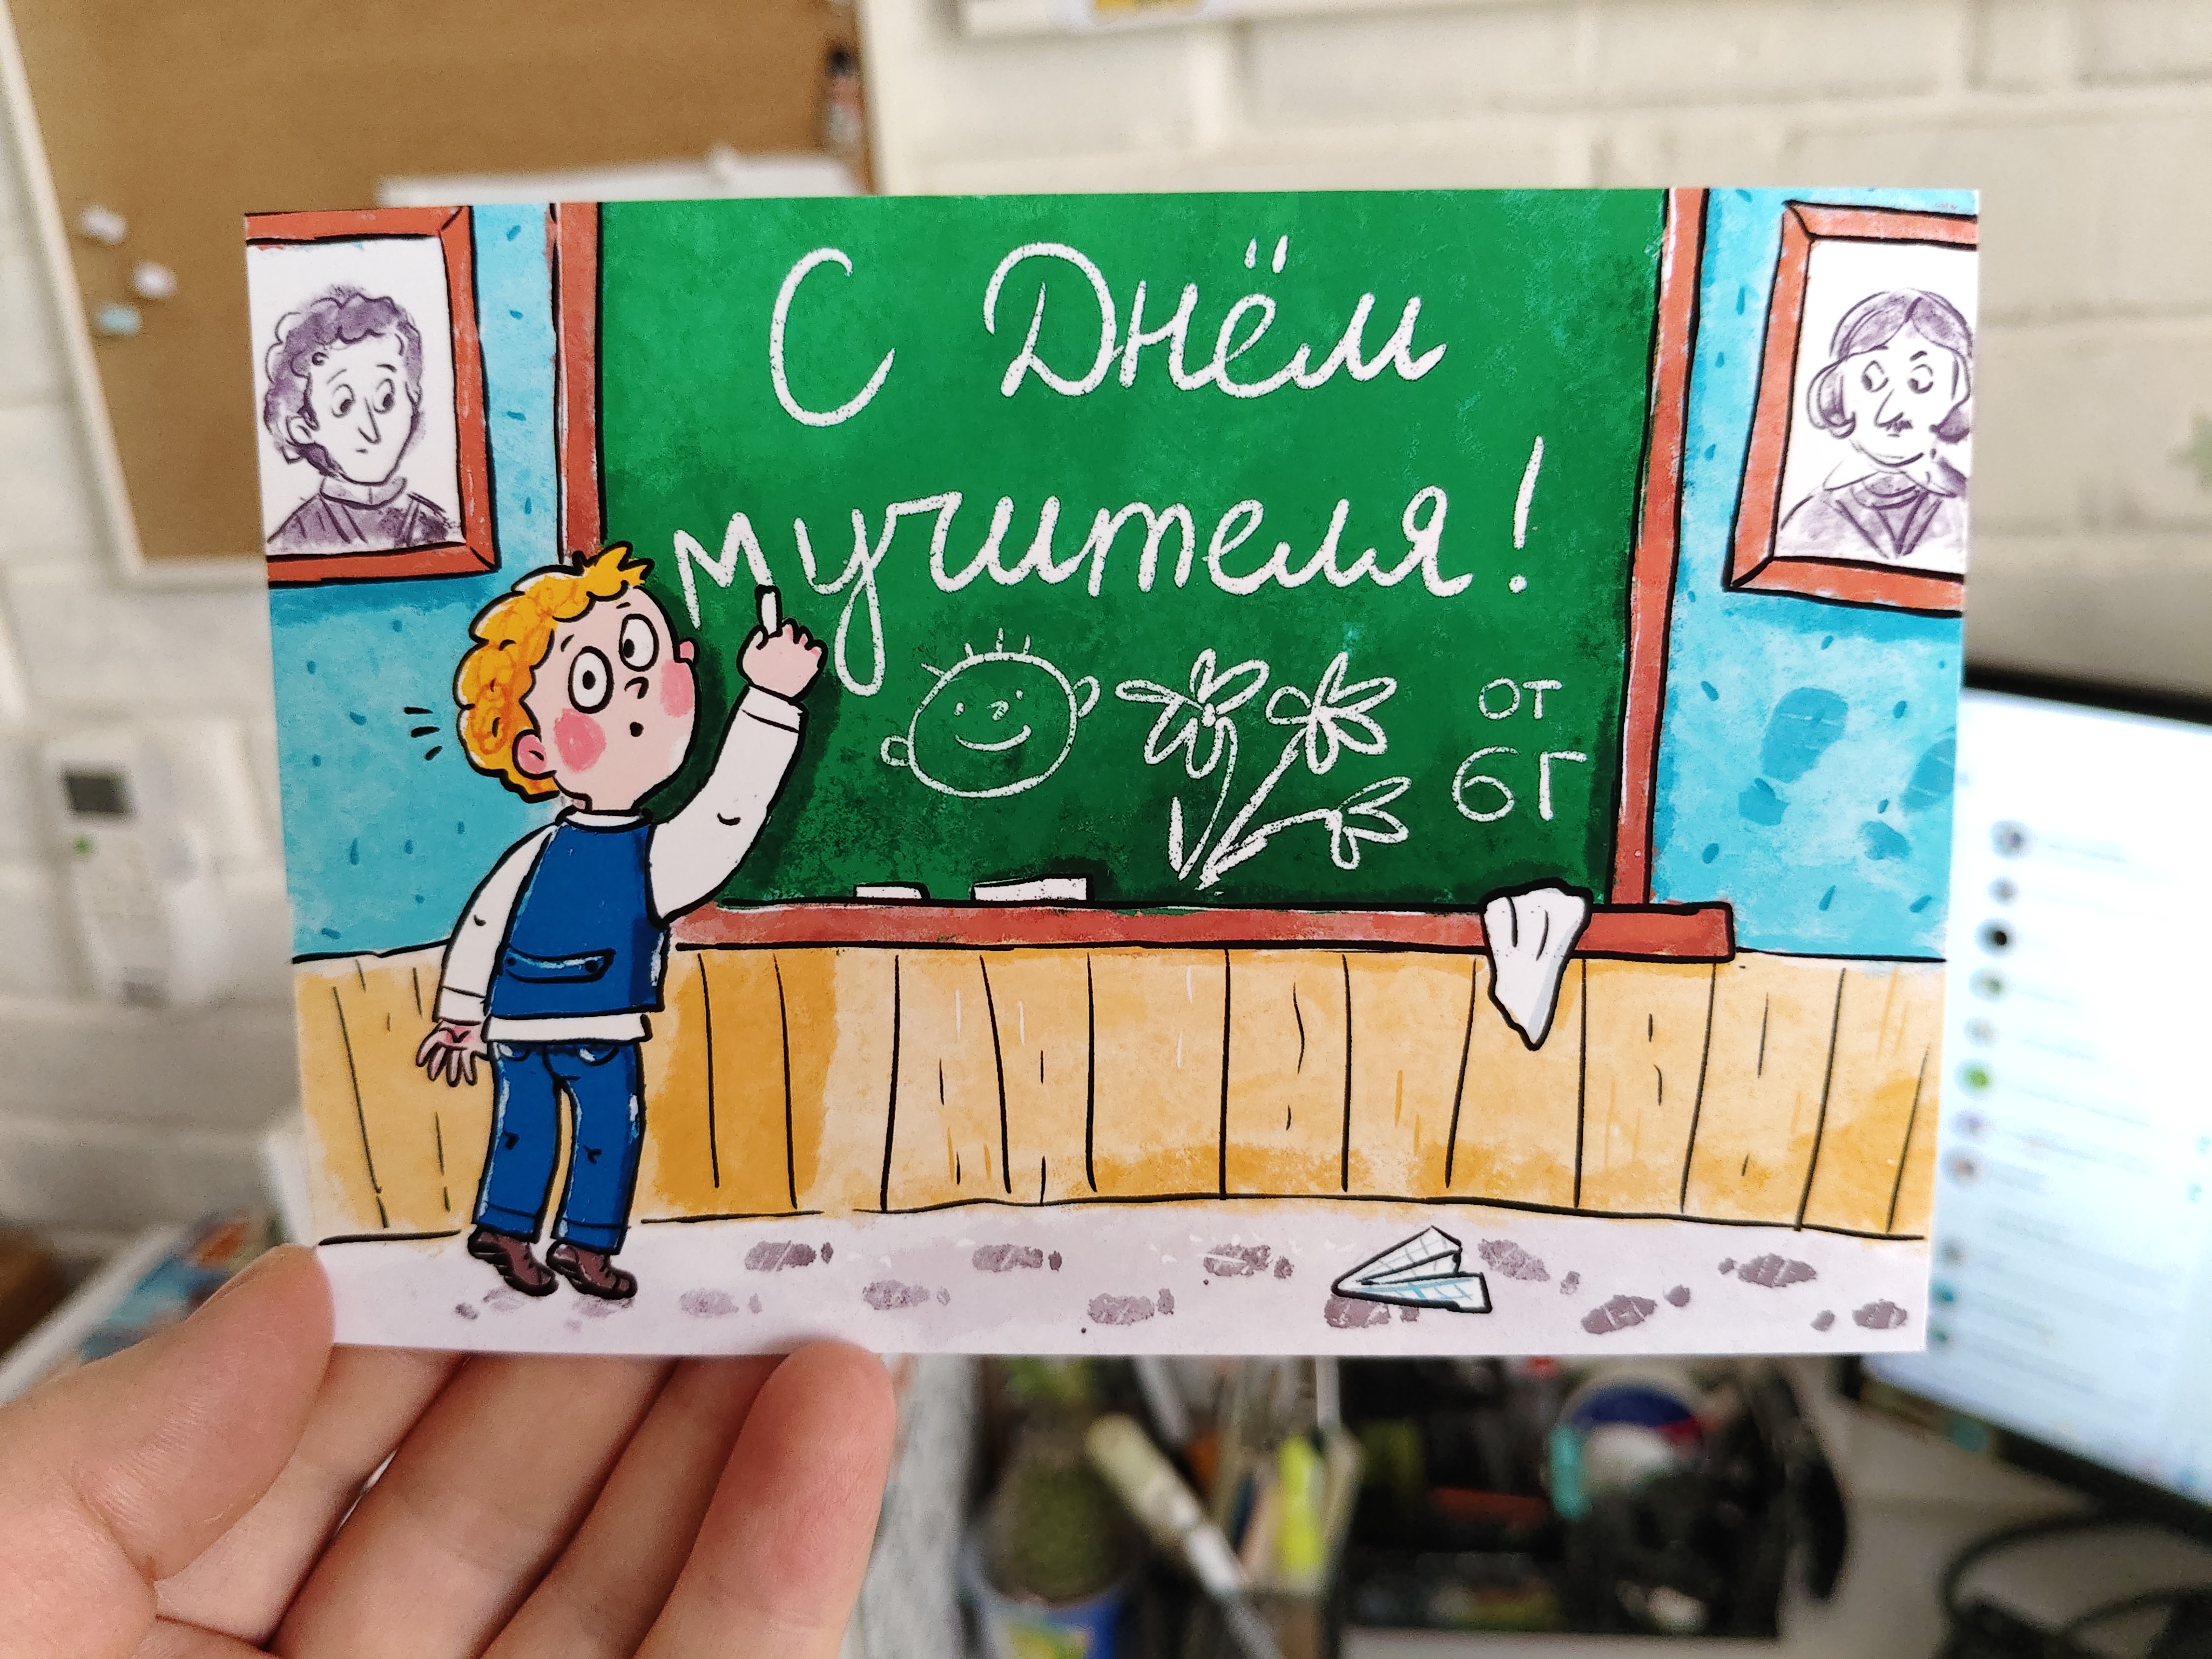 С Днём
мучителя!
от
6Г